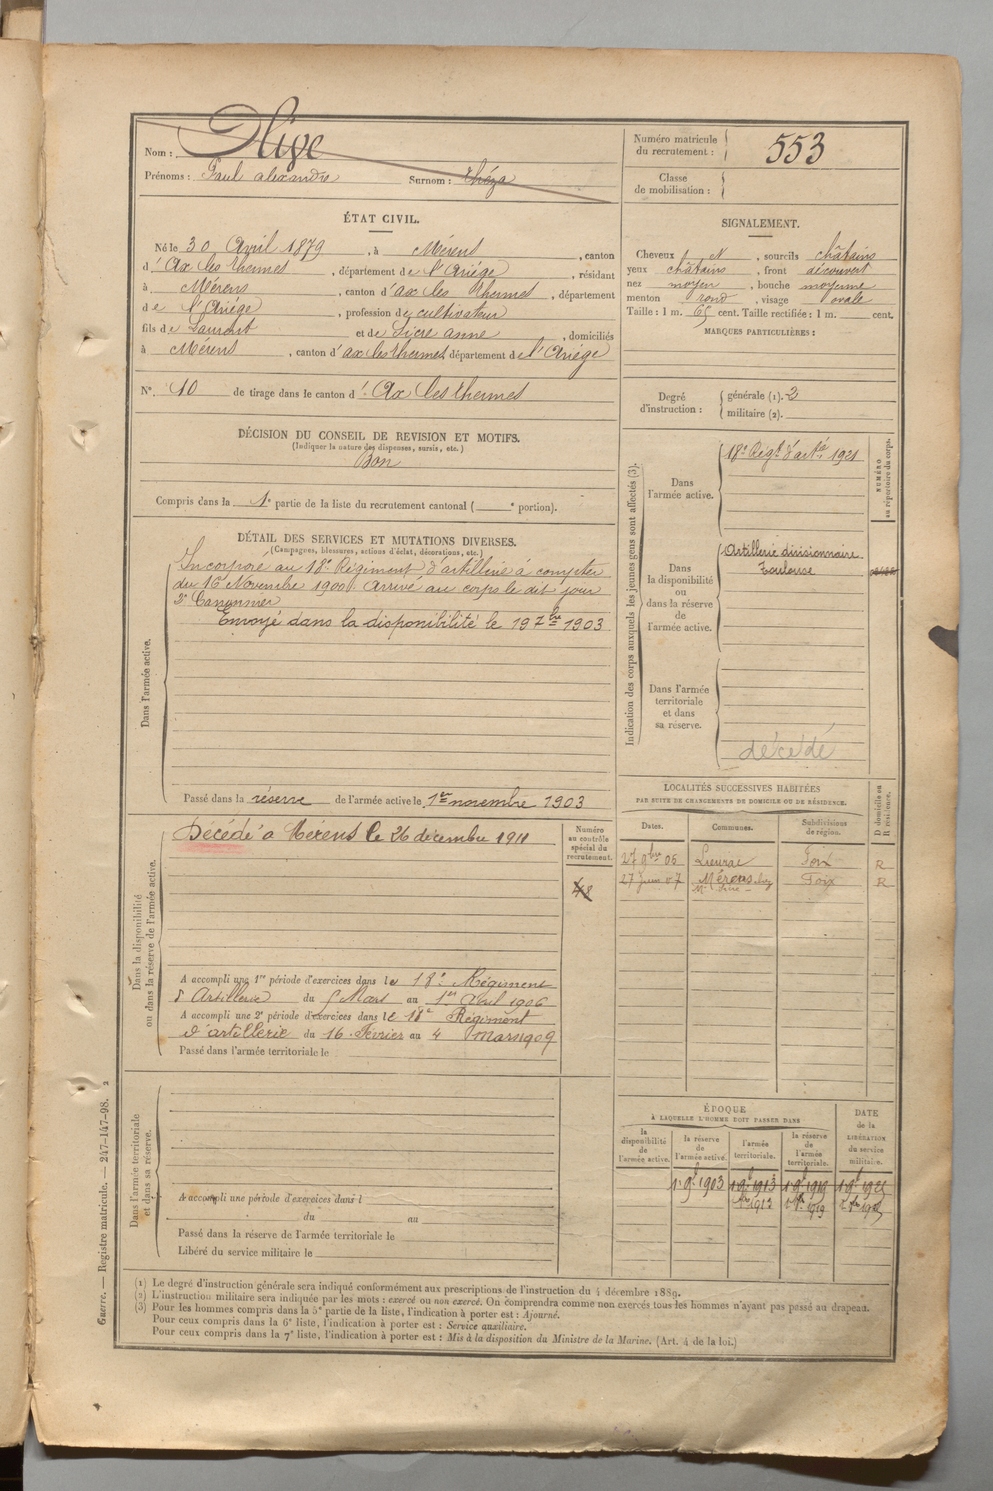 Nom : Olive
Prénoms : Paul alexandre Surnom : théza
Numéro matricule du recrutement : 553
Classe de mobilisation :
ÉTAT CIVIL.
Né le 30 Avril 1879, à Mérens, canton
d' Ax les thermes, département de l'Ariége, résidant
à Mérens, canton d'ax les thermes, département
de l'Ariége, profession de cultivateur
fils de Laurent et de Sicre anne, domiciliés
à Mérens, canton d'ax les thermes, département de l'Ariége
N° 10 de tirage dans le canton d' Ax les thermes
DÉCISION DU CONSEIL DE REVISION ET MOTIFS.
(Indiquer la nature des dispenses, sursis, etc.)
Bon
Compris dans la 1e partie de la liste du recrutement cantonal ( e portion).
DÉTAIL DES SERVICES ET MUTATIONS DIVERSES.
(Campagnes, blessures, actions d'éclat, décorations, etc.)
Dans l'armée active.
Incorporé au 18e Régiment d'artillerie à compter
du 16 Novembre 1900. Arrivé au corps le dit jour
2e Canonnier
Envoyé dans la disponibilité le 19 7bre 1903
Passé dans la réserve de l'armée active le 1er novembre 1903
Dans la disponibilité ou dans la réserve de l'armée active.
Décédé à Mérens le 26 décembre 1911
Numéro au contrôle spécial du recrutement.
A accompli une 1re période d'exercices dans le 18e Régiment
d'Artillerie du 5 Mars au 1er Avril 1906
A accompli une 2e période d'exercices dans le 18e Régiment
d'artillerie du 16 Février au 4 Mars 1909
Passé dans l'armée territoriale le
Dans l'armée territoriale et dans sa réserve.
A accompli une période d'exercices dans l
du au
Passé dans la réserve de l'armée territoriale le
Libéré du service militaire le
SIGNALEMENT.
Cheveux N, sourcils châtains
yeux châtains, front découvert
nez moyen, bouche moyenne
menton rond, visage ovale
Taille : 1 m. 65 cent. Taille rectifiée : 1 m. cent.
MARQUES PARTICULIÈRES :
Degré d'instruction : générale (1). 3
militaire (2).
Indication des corps auxquels les jeunes gens sont affectés (3).
NUMÉRO au répertoire du corps.
Dans l'armée active.
18e Régt d'artie 1921
Dans la disponibilité ou dans la réserve de l'armée active.
Artillerie divisionnaire
Toulouse
Dans l'armée territoriale et dans sa réserve.
décédé
LOCALITÉS SUCCESSIVES HABITÉES
PAR SUITE DE CHANGEMENTS DE DOMICILE OU DE RÉSIDENCE.
Dates. Communes. Subdivisions de région. D domicile ou R résidence.
27 9bre 05 Foix R
27 Juin 07 Mérens Foix R
ÉPOQUE
À LAQUELLE L'HOMME DOIT PASSER DANS
DATE de la LIBÉRATION du service militaire.
la disponibilité de l'armée active. la réserve de l'armée active. l'armée territoriale. la réserve de l'armée territoriale.
1 9bre 1903 1 9bre 1913 1 9bre 1919 1 9bre 1925
1913 1919
(1) Le degré d'instruction générale sera indiqué conformément aux prescriptions de l'instruction du 4 décembre 1889.
(2) L'instruction militaire sera indiquée par les mots : exercé ou non exercé. On comprendra comme non exercés tous les hommes n'ayant pas passé au drapeau.
(3) Pour les hommes compris dans la 5e partie de la liste, l'indication à porter est : Ajourné.
Pour ceux compris dans la 6e liste, l'indication à porter est : Service auxiliaire.
Pour ceux compris dans la 7e liste, l'indication à porter est : Mis à la disposition du Ministre de la Marine. (Art. 4 de la loi.)
Guerre. — Registre matricule. — 247-147-98. 2